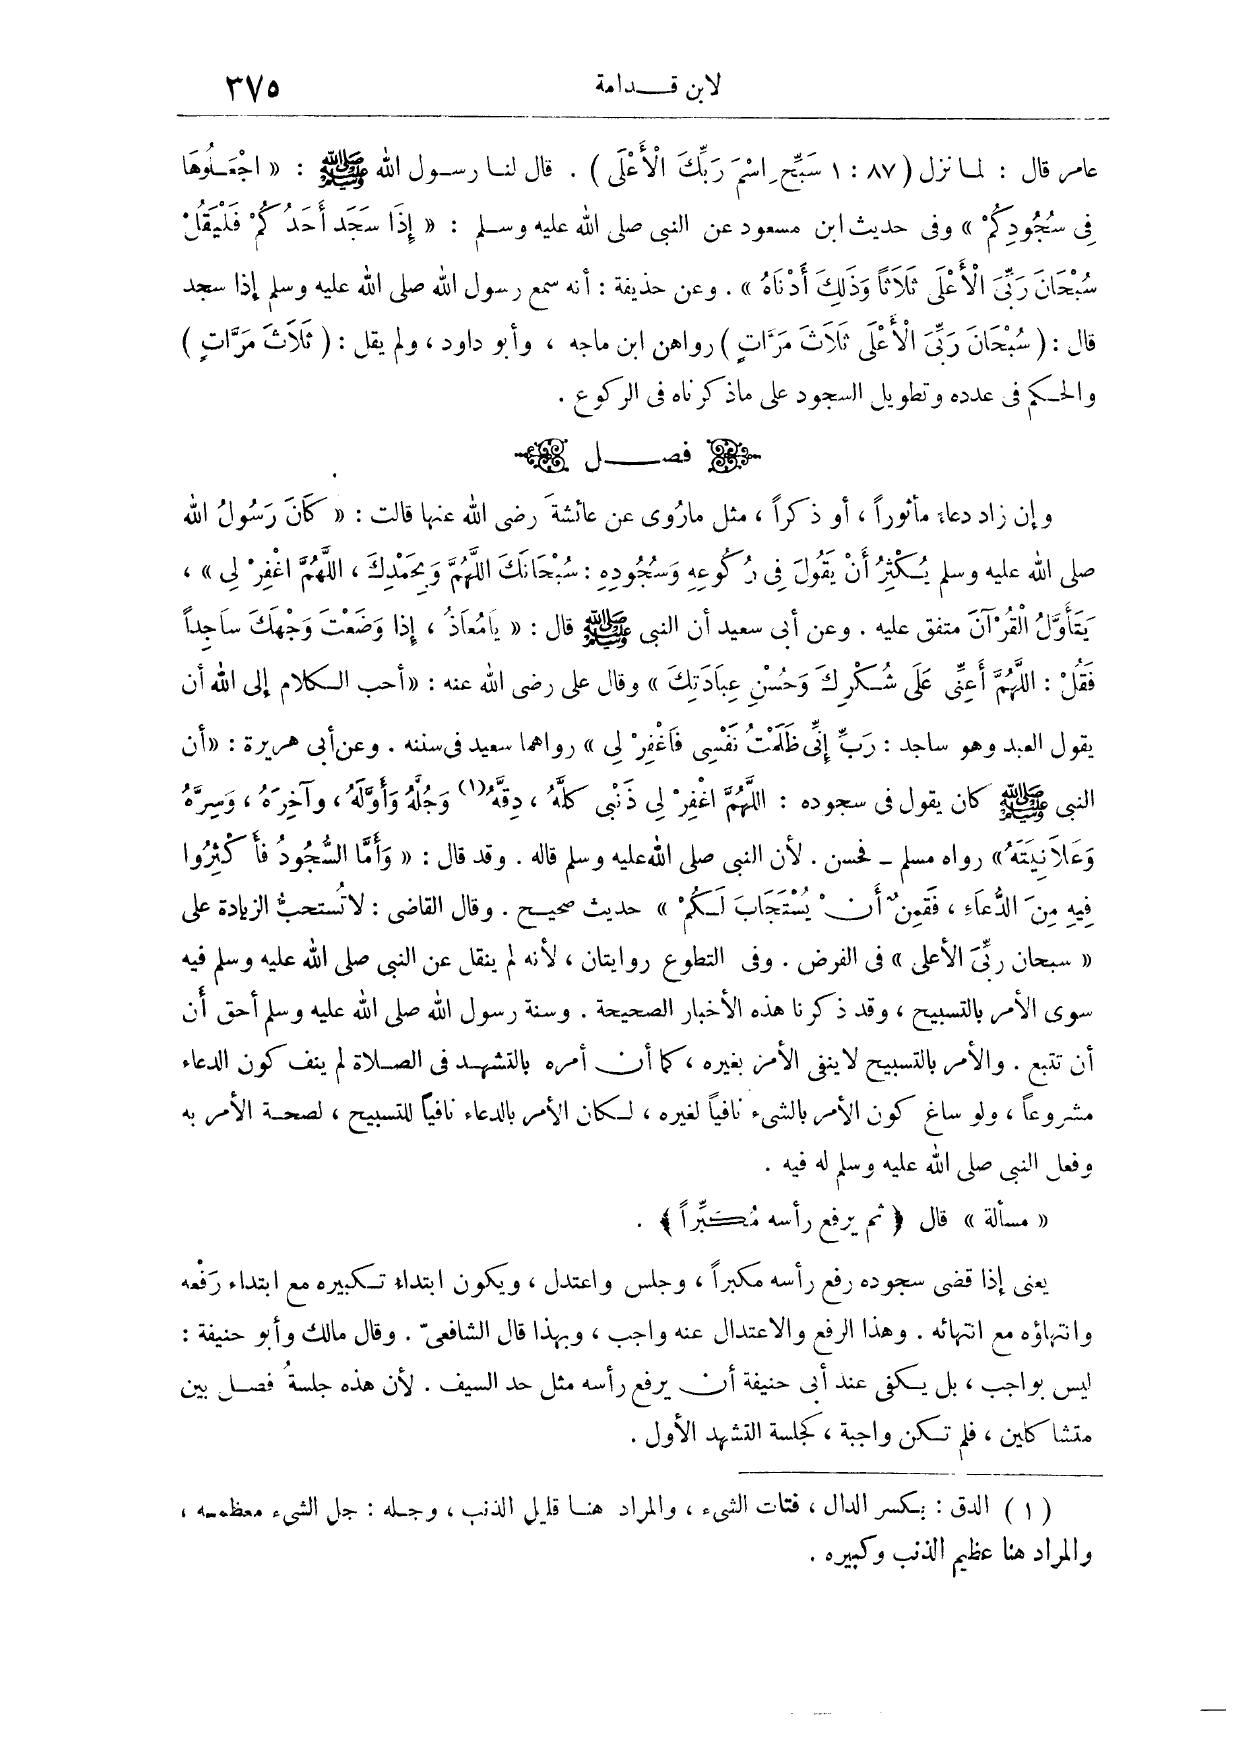 لابن قدامة ٣٧٥
عامر قال : لما نزل ( ٨٧ : ١ سَبِّحِ اسْمَ رَبِّكَ الْأَعْلَى ) . قال لنا رسول الله ﷺ : « اجْعَلُوهَا
فِى سُجُودِكُمْ » وفى حديث ابن مسعود عن النبى صلى الله عليه وسلم : « إِذَا سَجَدَ أَحَدُكُمْ فَلْيَقُلْ
سُبْحَانَ رَبِّىَ الْأَعْلَى ثَلَاثاً وَذَلِكَ أَدْنَاهُ » . وعن حذيفة : أنه سمع رسول الله صلى الله عليه وسلم إذا سجد
قال : ( سُبْحَانَ رَبِّىَ الْأَعْلَى ثَلَاثَ مَرَّاتٍ ) رواهن ابن ماجه ، وأبو داود ، ولم يقل : ( ثَلَاثَ مَرَّاتٍ )
والحكم فى عدده وتطويل السجود على ماذكرناه فى الركوع .
فصل
وإن زاد دعاء مأثوراً ، أو ذكراً ، مثل مارُوى عن عائشةَ رضى الله عنها قالت : « كَانَ رَسُولُ الله
صلى الله عليه وسلم يُكْثِرُ أَنْ يَقُولَ فِى رُكُوعِهِ وَسُجُودِهِ : سُبْحَانَكَ اللَّهُمَّ وَبِحَمْدِكَ ، اللَّهُمَّ اغْفِرْ لِى » ،
يَتَأَوَّلُ الْقُرْآنَ متفق عليه . وعن أبى سعيد أن النبى ﷺ قال : « يَامُعَاذُ ، إِذَا وَضَعْتَ وَجْهَكَ سَاجِداً
فَقُلْ : اللَّهُمَّ أَعِنِّى عَلَى شُكْرِكَ وَحُسْنِ عِبَادَتِكَ » وقال على رضى الله عنه : «أحب الكلام إلى الله أن
يقول العبد وهو ساجد : رَبِّ إِنِّى ظَلَمْتُ نَفْسِى فَاغْفِرْ لِى » رواهما سعيد فى سننه . وعن أبى هريرة : «أن
النبى ﷺ كان يقول فى سجوده : اللَّهُمَّ اغْفِرْ لِى ذَنْبِى كُلَّهُ ، دِقَّهُ(١) وَجُلَّهُ وَأَوَّلَهُ ، وآخِرَهُ ، وَسِرَّهُ
وَعَلَانِيَتَهُ» رواه مسلم – فحسن . لأن النبى صلى الله عليه وسلم قاله . وقد قال : « وَأَمَّا السُّجُودُ فَأَكْثِرُوا
فِيهِ مِنَ الدُّعَاءِ ، فَقَمِنٌ أَنْ يُسْتَجَابَ لَكُمْ » حديث صحيح . وقال القاضى : لا تُستحبُّ الزيادة على
« سبحان ربِّىَ الأعلى » فى الفرض . وفى التطوع روايتان ، لأنه لم ينقل عن النبى صلى الله عليه وسلم فيه
سوى الأمر بالتسبيح ، وقد ذكرنا هذه الأخبار الصحيحة . وسنة رسول الله صلى الله عليه وسلم أحق أن
أن تتبع . والأمر بالتسبيح لاينفى الأمر بغيره ، كما أن أمره بالتشهد فى الصلاة لم ينف كون الدعاء
مشروعاً ، ولو ساغ كون الأمر بالشىء نافياً لغيره ، لكان الأمر بالدعاء نافياً للتسبيح ، لصحة الأمر به
وفعل النبى صلى الله عليه وسلم له فيه .
« مسألة » قال ﴿ ثم يرفع رأسه مُكَبِّراً ﴾ .
يعنى إذا قضى سجوده رفع رأسه مكبراً ، وجلس واعتدل ، ويكون ابتداء تكبيره مع ابتداء رَفْعه
وانتهاؤه مع انتهائه . وهذا الرفع والاعتدال عنه واجب ، وبهذا قال الشافعىّ . وقال مالك وأبو حنيفة :
ليس بواجب ، بل يكفى عند أبى حنيفة أن يرفع رأسه مثل حد السيف . لأن هذه جلسةُ فصل بين
متشاكلين ، فلم تكن واجبة ، كجلسة التشهد الأول .
( ١ ) الدق : بكسر الدال ، فتات الشىء ، والمراد هنا قليل الذنب ، وجله : جل الشىء معظمه ،
والمراد هنا عظيم الذنب وكبيره .